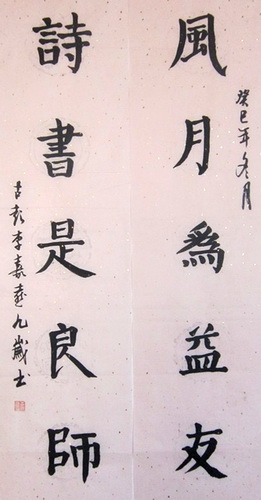 癸巳年冬月
風月爲益友
詩書是良師
古彭李嘉九歲书